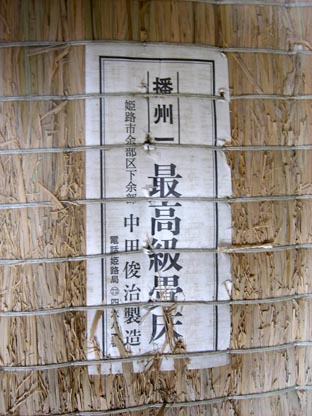 播州一
最高級畳床
姫路市余部区下余部
中田俊治製造
電話姫路局